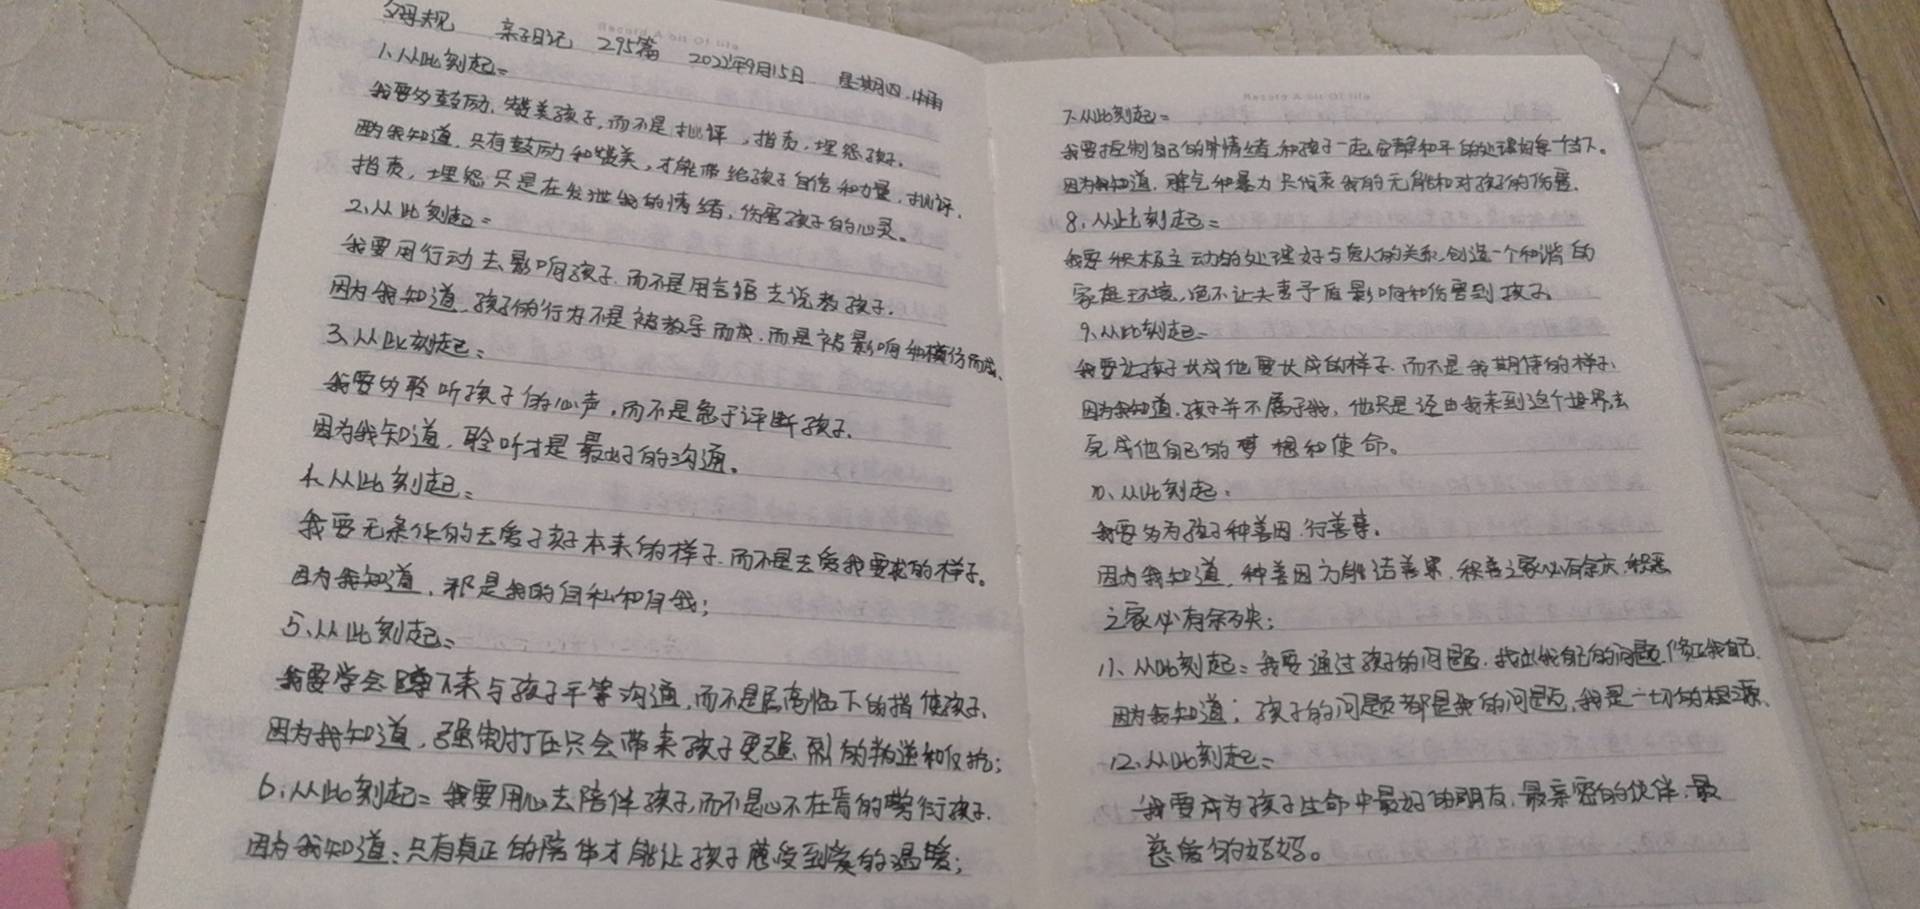 父母规 亲子日记 295篇 2022年9月15日 星期四 小雨
1、从此刻起：
我要多鼓励、赞美孩子，而不是批评，指责，埋怨孩子。
因为我知道，只有鼓励和赞美，才能带给孩子自信和力量，批评、
指责，埋怨只是在发泄我的情绪，伤害孩子的心灵。
2、从此刻起：
我要用行动去影响孩子，而不是用言语去说教孩子.
因为我知道，孩子的行为不是被教导而成，而是被影响和模仿而成、
3、从此刻起：
我要多聆听孩子的心声，而不是急于评断孩子.
因为我知道，聆听才是最好的沟通。
4、从此刻起：
我要无条件的去爱子孩子本来的样子，而不是去爱我要求的样子。
因为我知道，那是我的自私和自我；
5、从此刻起：
我要学会蹲下来与孩子平等沟通，而不是居高临下的指使孩子、
因为我知道，强制打压只会带来孩子更强烈的叛逆和反抗；
6、从此刻起：我要用心去陪伴孩子，而不是心不在焉的敷衍孩子.
因为我知道：只有真正的陪伴才能让孩子感受到爱的温暖；
Record A bit Of life
7、从此刻起：
我要控制自己的情绪，和孩子一起安静和平的处理好每一个当下。
因为我知道，脾气和暴力只代表我的无能和对孩子的伤害.
8、从此刻起：
我要积极主动的处理好与爱人的关系，创造一个和谐的
家庭环境，绝不让夫妻矛盾影响和伤害到孩子
9、从此刻起：
我要让孩子长成他要长成的样子，而不是我期待的样子、
因为我知道，孩子并不属于我，他只是经由我来到这个世界去
完成他自己的梦想和使命。
10、从此刻起：
我要多为孩子种善因，行善事。
因为我知道，种善因方能结善果，积善之家必有余庆，积恶
之家必有余殃；
11、从此刻起：我要通过孩子的问题，找出我自己的问题，修正我自己.
因为我知道；孩子的问题都是我的问题，我是一切的根源、
12、从此刻起：
我要成为孩子生命中最好的朋友，最亲密的伙伴，最
慈爱的妈妈。